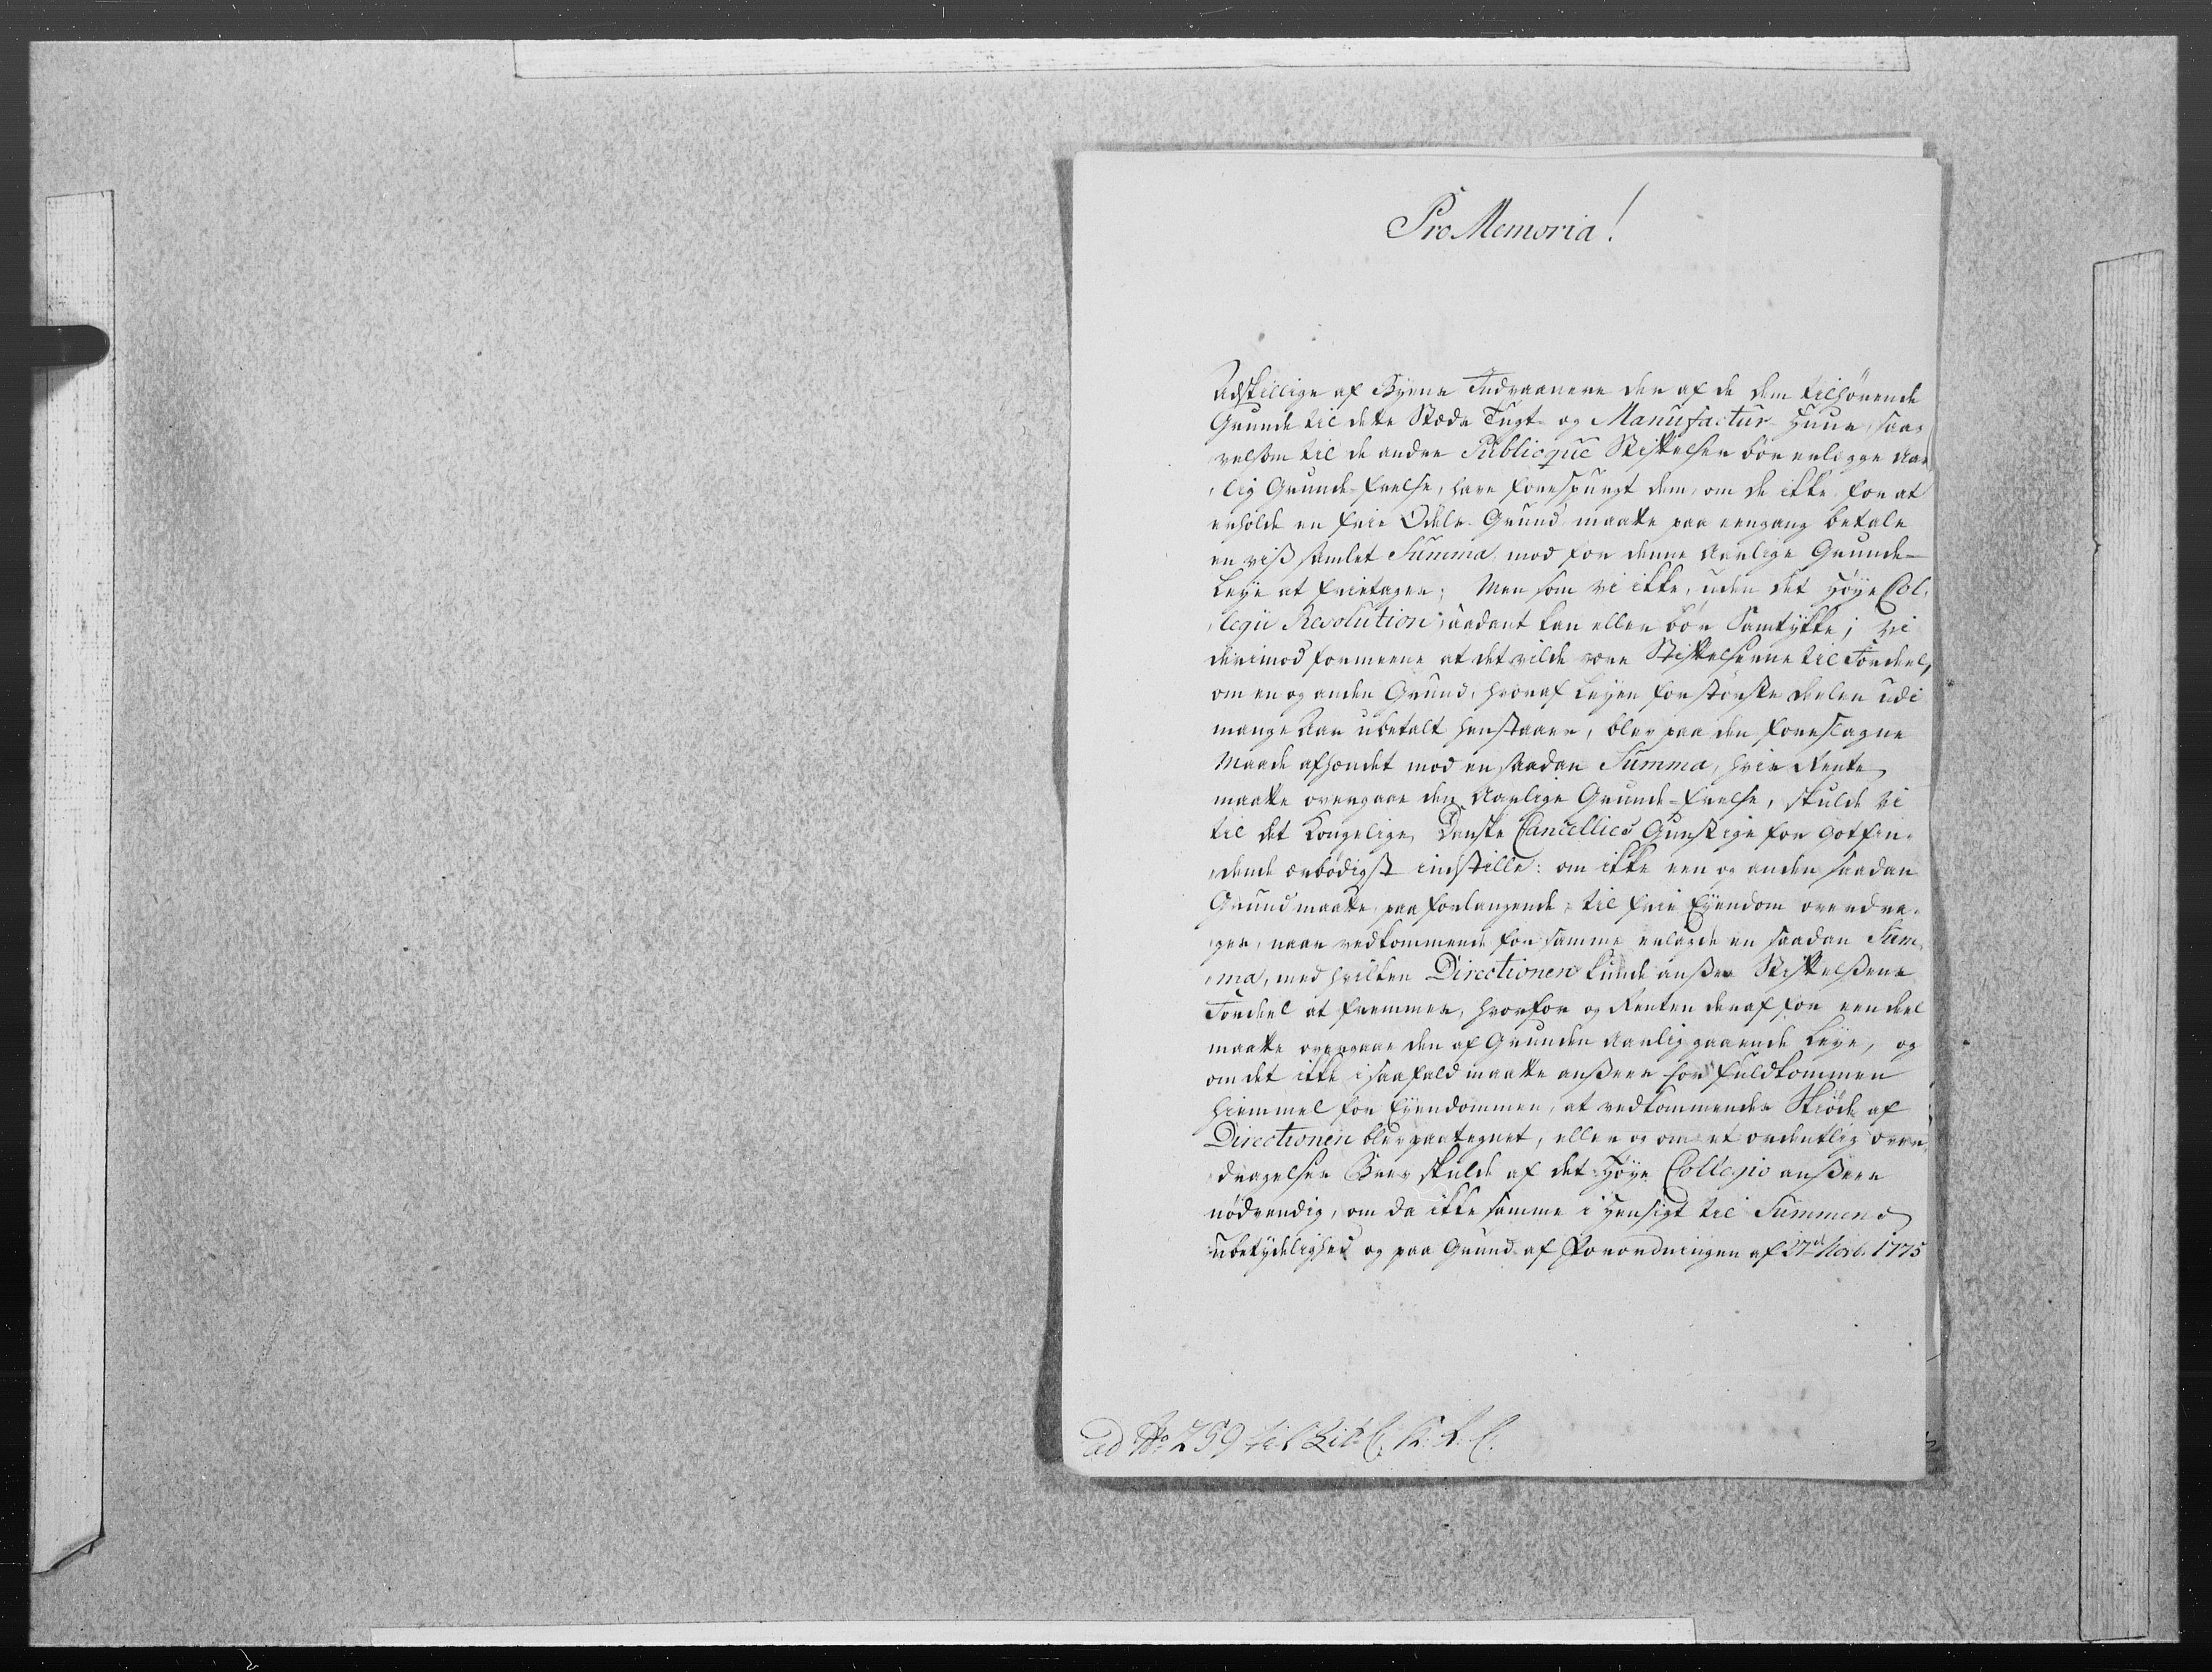 Pro Memoria!
Adskillige af Byens Indvaanere der af de dem tilhørende
Grunde til dette Steds Tugt- og Manufactur Huus, saa-
velsom til de andre Publicque Stiftelser bør erlægge aar-
lig Grunde-frelse, have forespurgt dem, om de ikke for at
erholde en frie Odels Grund maatte paa eengang betale
en viss samlet Summa mod for denne Aarlige Grunde-
Leye at frietages; Men som vi ikke, uden det høye Col-
legii Resolution saadant kan eller bør Samtykke; Vi
derimod formeene at det vilde være Stiftelserne til Fordeel,
om en og anden Grund, hvoraf Leyen for største deelen udi
mange Aar ubetalt henstaaer, blev paa den foreslagne
Maade afhændet mod en saadan Summa, hvis Rente
maatte overgaae den Aarlige Grunde-frelse, skulde Vi
til det Kongelige Danske Cancellies Gunstige for Gotfin-
dende ærbødigst indstille: om ikke een og anden saadan
Grund maatte, paa forlangende, til frie Eyendom overdra-
ges, naar vedkommende for samme erlagde en saadan Sum-
ma, med hvilken Directionen kunde ansee Stiftelsens
Fordeel at fremmes, hvorfor og Renten deraf for een deel
maatte overgaae den af Grunden Aarlig gaaende Leye, og
om det ikke i saafald maatte ansees for fuldkommen
Hiemmel for Eyendommen, at vedkommendes Skiøde af
Directionen blev paategnet, eller og om et ordentlig over-
dragelses Brev skulde af det høye Collegio ansees
nødvendig, om da ikke samme i Hensigt til Summens
ubetydelighed og paa Grund af Forordningen af 27d Novb. 1775
ad No 259 til Lit. C.